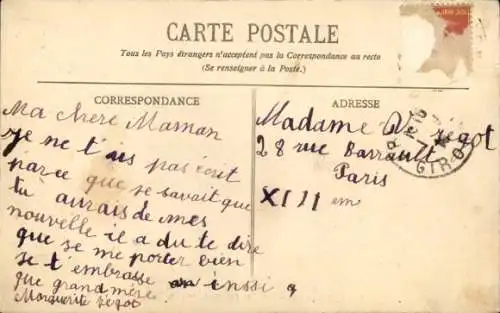 CARTE POSTALE
Tous les Pays étrangers n'acceptent pas la Correspondance au recto
(Se renseigner à la Poste.)
CORRESPONDANCE
Ma chere Maman
je ne t'us pas ecrit
parce que se savait que
tu aurais de mes
nouvelle il a du te dire
que se me porter bien
se t'embrasse inssi
que grand mére
Marguerite
ADRESSE
Madame
28 rue Barrault
Paris
XIII em
GIRO